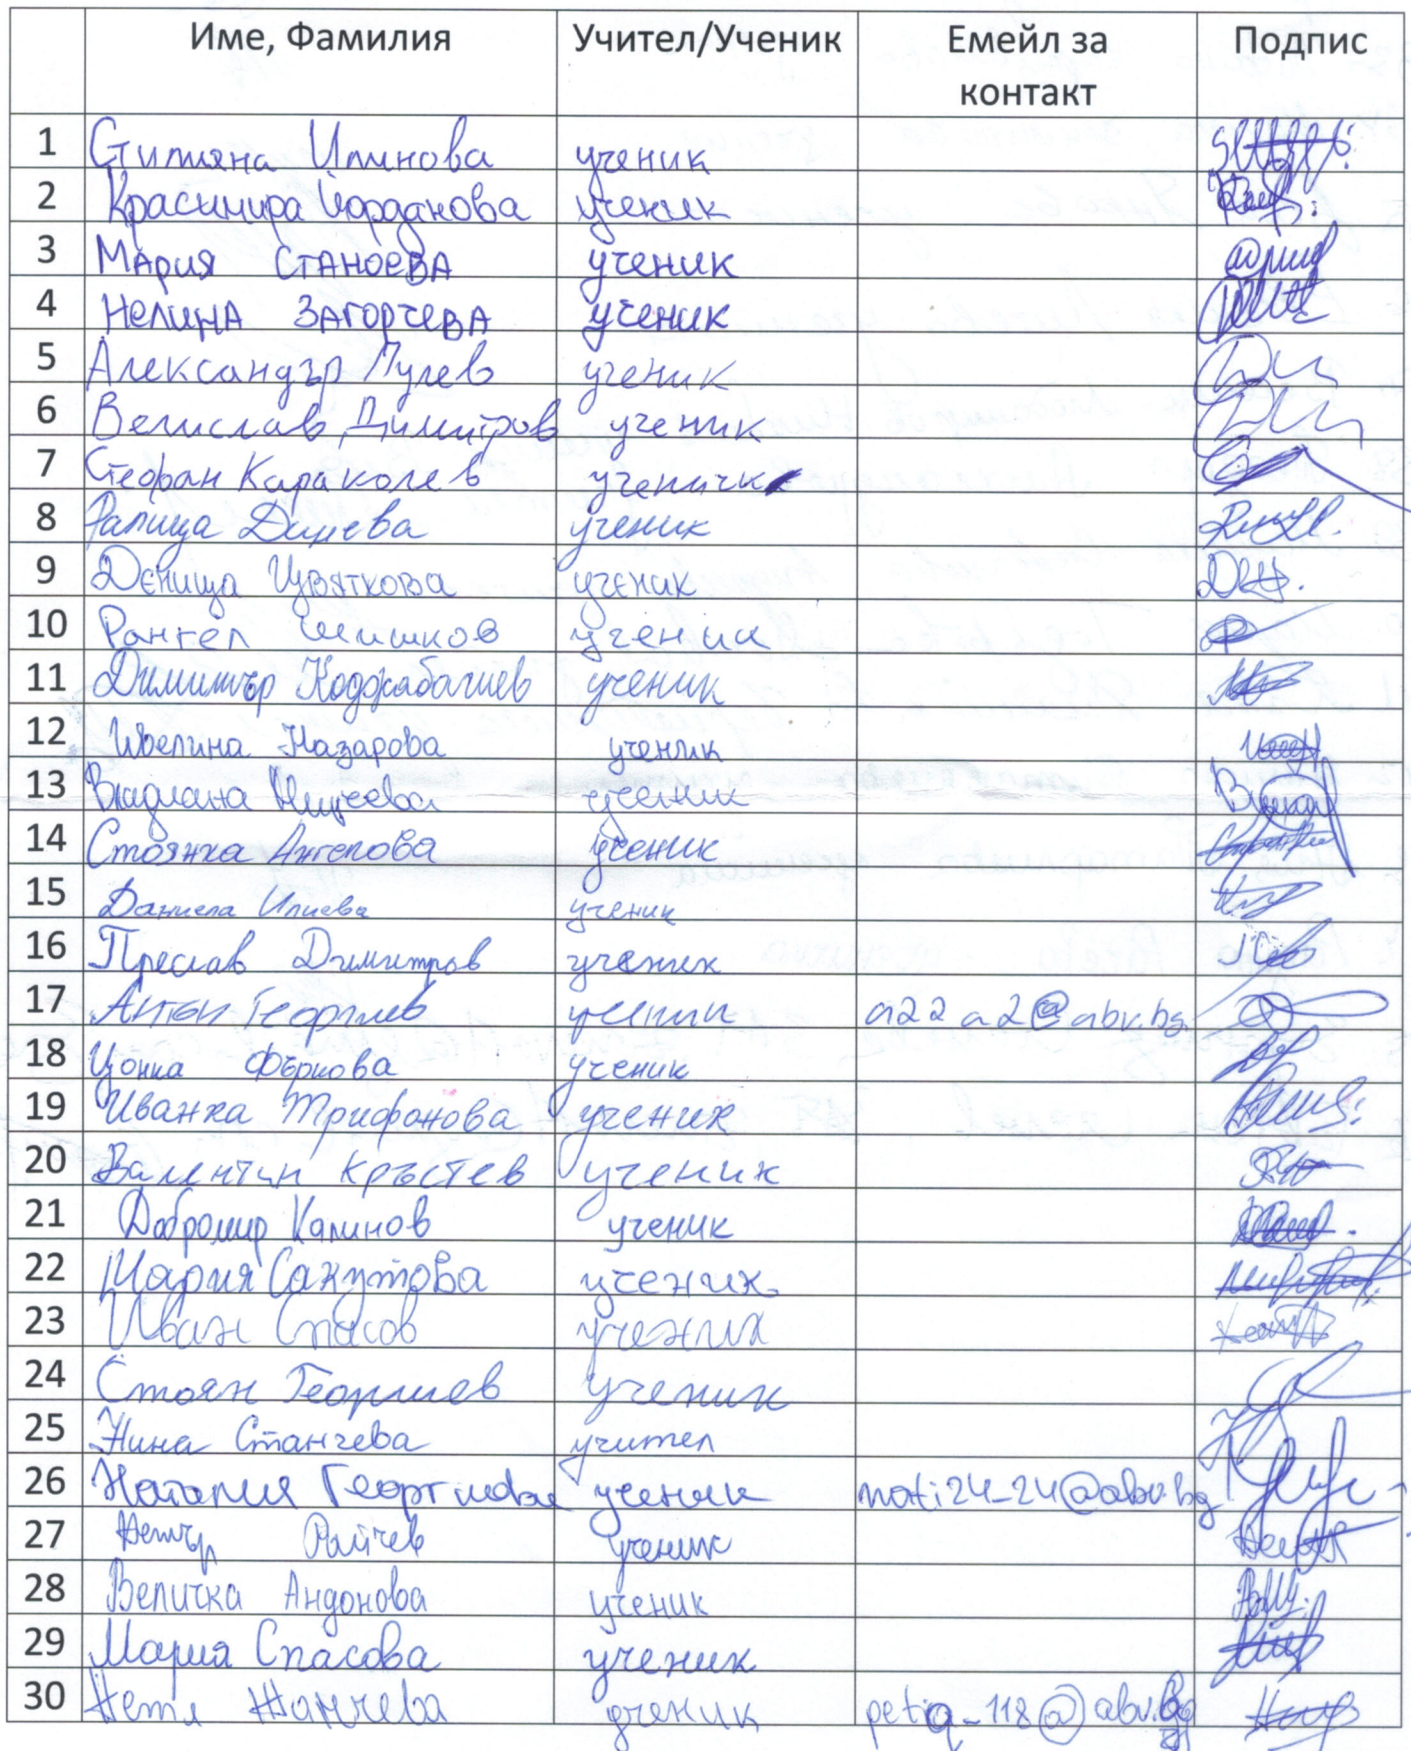 Име, Фамилия Учител/Ученик Емейл за контакт Подпис
1 Стилияна Илинова ученик
2 Красимира Йорданова ученик
3 Мария Станоева ученик
4 Нелина Загорчева ученик
5 Александър Пулев ученик
6 Велислав Димитров ученик
7 Стефан Караколев ученичк
8 Ралица Динева ученик
9 Деница Цвяткова ученик
10 Рангел Шишков ученик
11 Димитър Коджабашиев ученик
12 Ивелина Назарова ученик
13 ученик
14 Стоянка Ангелова ученик
15 Даниела Илиева ученик
16 Преслав Димитров ученик
17 Антон Георгиев ученик a22a2@abv.bg
18 Цонка Фъркова ученик
19 Иванка Трифонова ученик
20 Валентин Кръстев ученик
21 Добромир Калинов ученик
22 Мария Сакутова ученик
23 Иван Спасов ученик
24 Стоян Георгиев ученик
25 Нина Станчева учител
26 Наталия Георгиева ученик nati24_24@abv.bg
27 Петър Райчев ученик
28 Величка Андонова ученик
29 Мария Спасова ученик
30 Петя ученик petiq_118@abv.bg